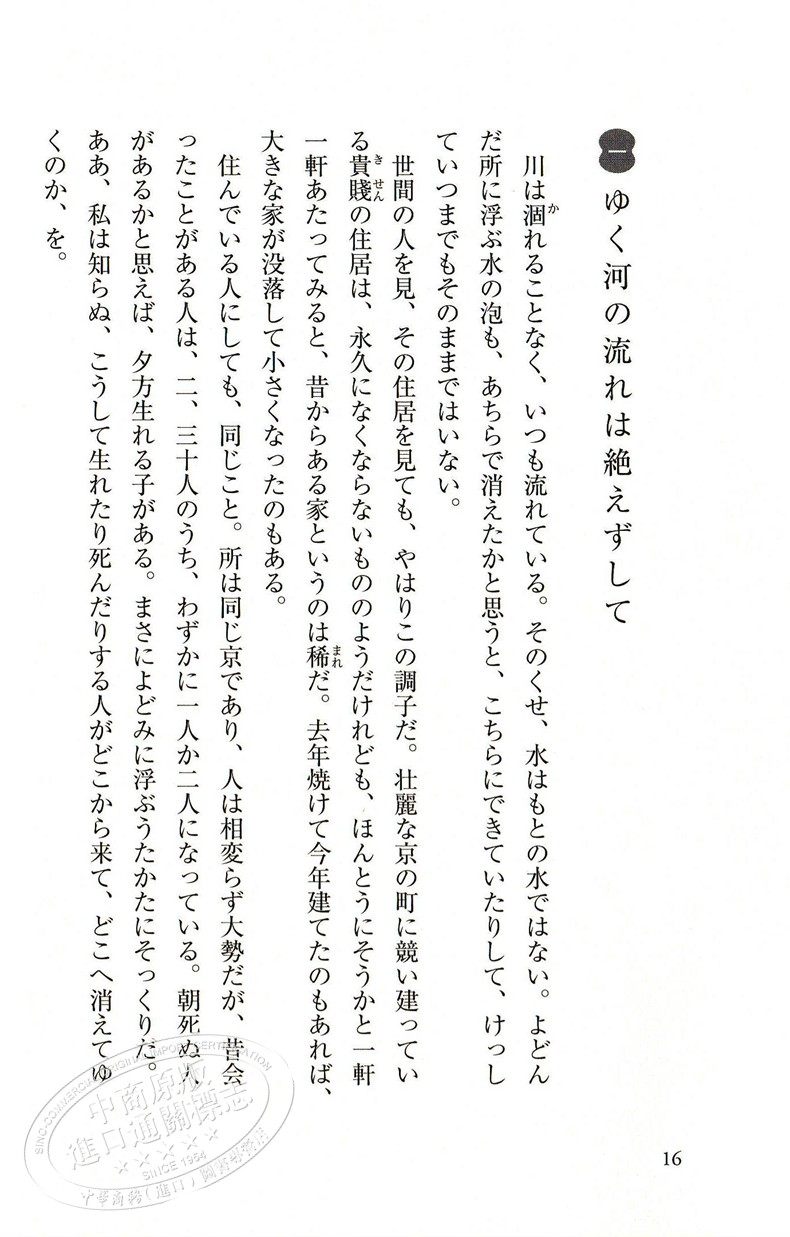 一 ゆく河の流れは絶えずして
川は涸れることなく、いつも流れている。そのくせ、水はもとの水ではない。よどん
か
だ所に浮ぶ水の泡も、あちらで消えたかと思うと、こちらにできていたりして、けっし
ていつまでもそのままではいない。
世間の人を見、その住居を見ても、やはりこの調子だ。壮麗な京の町に競い建ってい
る貴賤の住居は、永久になくならないもののようだけれども、ほんとうにそうかと一軒
き せん
一軒あたってみると、昔からある家というのは稀だ。去年焼けて今年建てたのもあれば、
まれ
大きな家が没落して小さくなったのもある。
住んでいる人にしても、同じこと。所は同じ京であり、人は相変らず大勢だが、昔会
ったことがある人は、二、三十人のうち、わずかに一人か二人になっている。朝死ぬ人
があるかと思えば、夕方生れる子がある。まさによどみに浮ぶうたかたにそっくりだ。
ああ、私は知らぬ、こうして生れたり死んだりする人がどこから来て、どこへ消えてゆ
くのか、を。
16
中商原版
進口通關標志
SINCE 1984